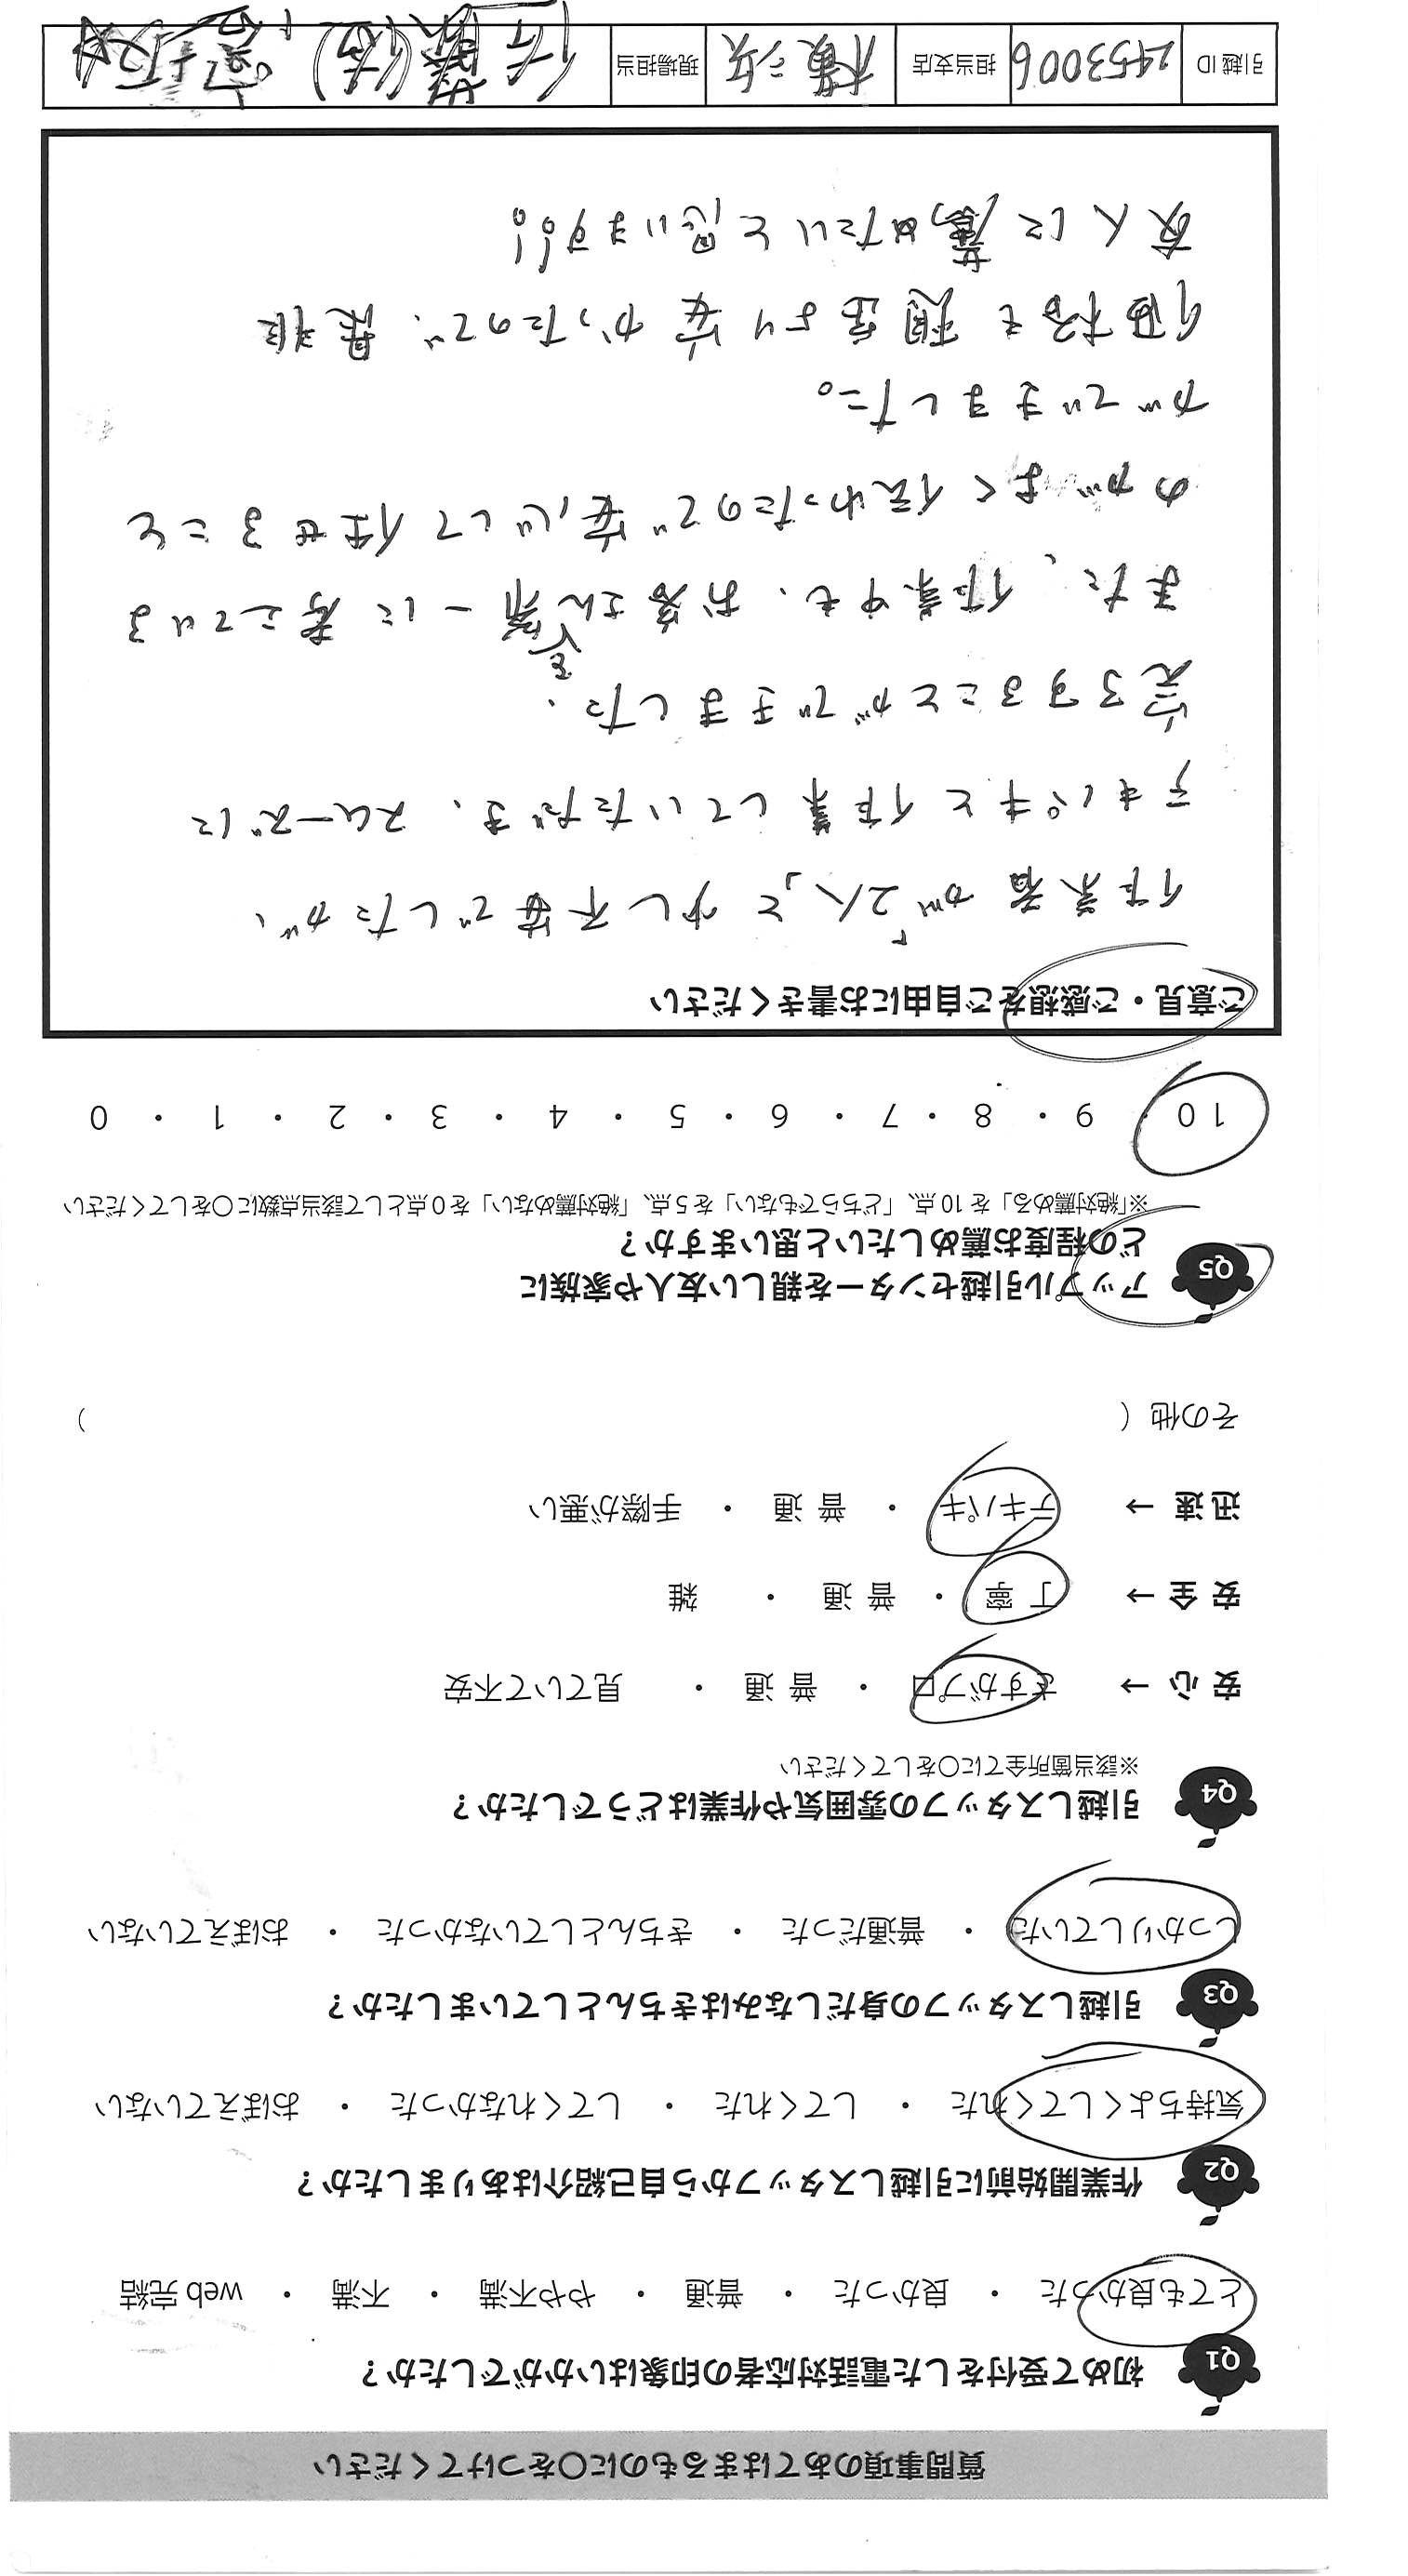 質問事項のあてはまるものに○をつけてください
Q1 初めて受付をした電話対応者の印象はいかがでしたか？
とても良かった ・ 良かった ・ 普通 ・ やや不満 ・ 不満 ・ web 完結
Q2 作業開始前に引越しスタッフから自己紹介はありましたか？
気持ちよくしてくれた ・ してくれた ・ してくれなかった ・ おぼえていない
Q3 引越しスタッフの身だしなみはきちんとしていましたか？
しっかりしていた ・ 普通だった ・ きちんとしていなかった ・ おぼえていない
Q4 引越しスタッフの雰囲気や作業はどうでしたか？
※該当箇所全てに○をしてください
安 心 → さすがプロ ・ 普 通 ・ 見ていて不安
安 全 → 丁 寧 ・ 普 通 ・ 雑
迅 速 → テキパキ ・ 普 通 ・ 手際が悪い
その他（ ）
Q5 アップル引越センターを親しい友人や家族に
どの程度お薦めしたいと思いますか？
※「絶対薦める」を 10 点、「どちらでもない」を 5 点、「絶対薦めない」を 0 点として該当点数に○をしてください
10 ・ 9 ・ 8 ・ 7 ・ 6 ・ 5 ・ 4 ・ 3 ・ 2 ・ 1 ・ 0
ご意見・ご感想をご自由にお書きください
作業者が「2人」と少し不安でしたが、
テキパキと作業していただき、スムーズに
完了することができました。
また、作業中も、お客さんを第一に考えている
のがよく伝わったので安心して任せること
ができました。
価格も予想金より安かったので、是非
友人に薦めたいと思います!!
引越 ID 2453006 担当支店 横浜 現場担当 佐藤